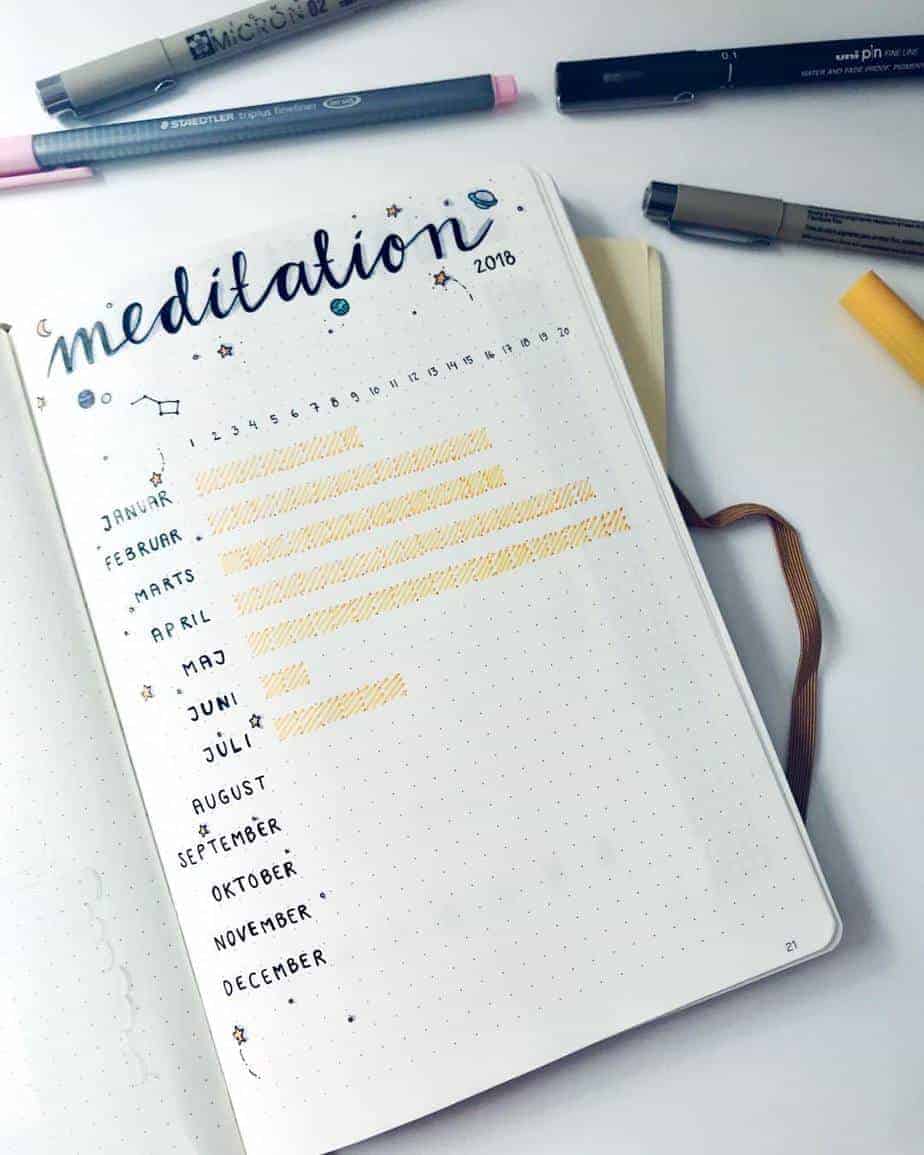 MICRON 02
STAEDTLER triplus fineliner
0.1 uni pin FINE LINE
WATER AND FADE PROOF, PIGMENT
meditation
2018
1 2 3 4 5 6 7 8 9 10 11 12 13 14 15 16 17 18 19 20
JANUAR
FEBRUAR
MARTS
APRIL
MAJ
JUNI
JULI
AUGUST
SEPTEMBER
OKTOBER
NOVEMBER
DECEMBER
21